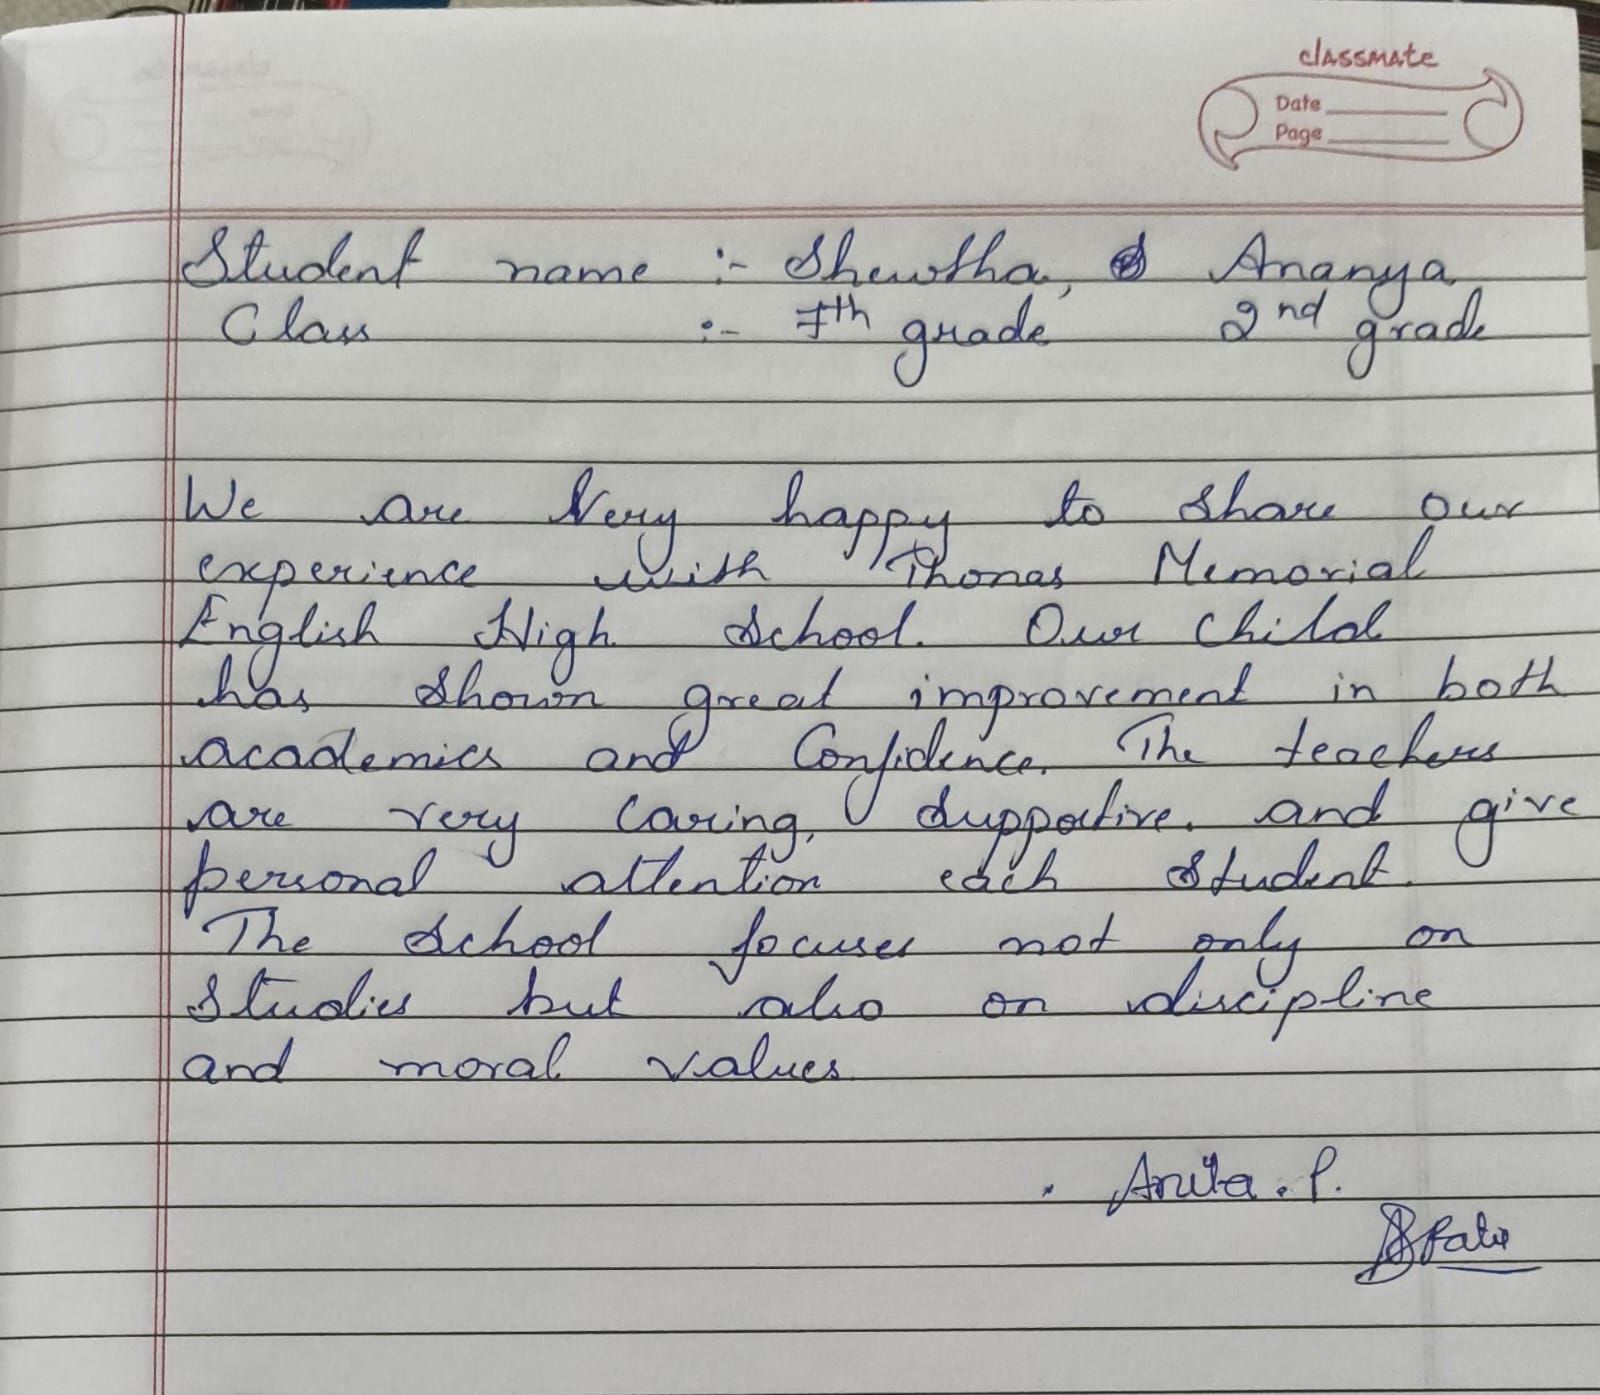 classmate
Date
Page
Student name :- Shewtha, Ananya
Class :- 7th grade 2nd grade
We are Very happy to share our
experience with Thomas Memorial
English High School. Our Child
has Shown great improvement in both
academics and Confidence. The teachers
are very Caring, Supportive. and give
personal attention each Student.
The School focuses not only on
Studies but also on discipline
and moral values
. Anita. P.